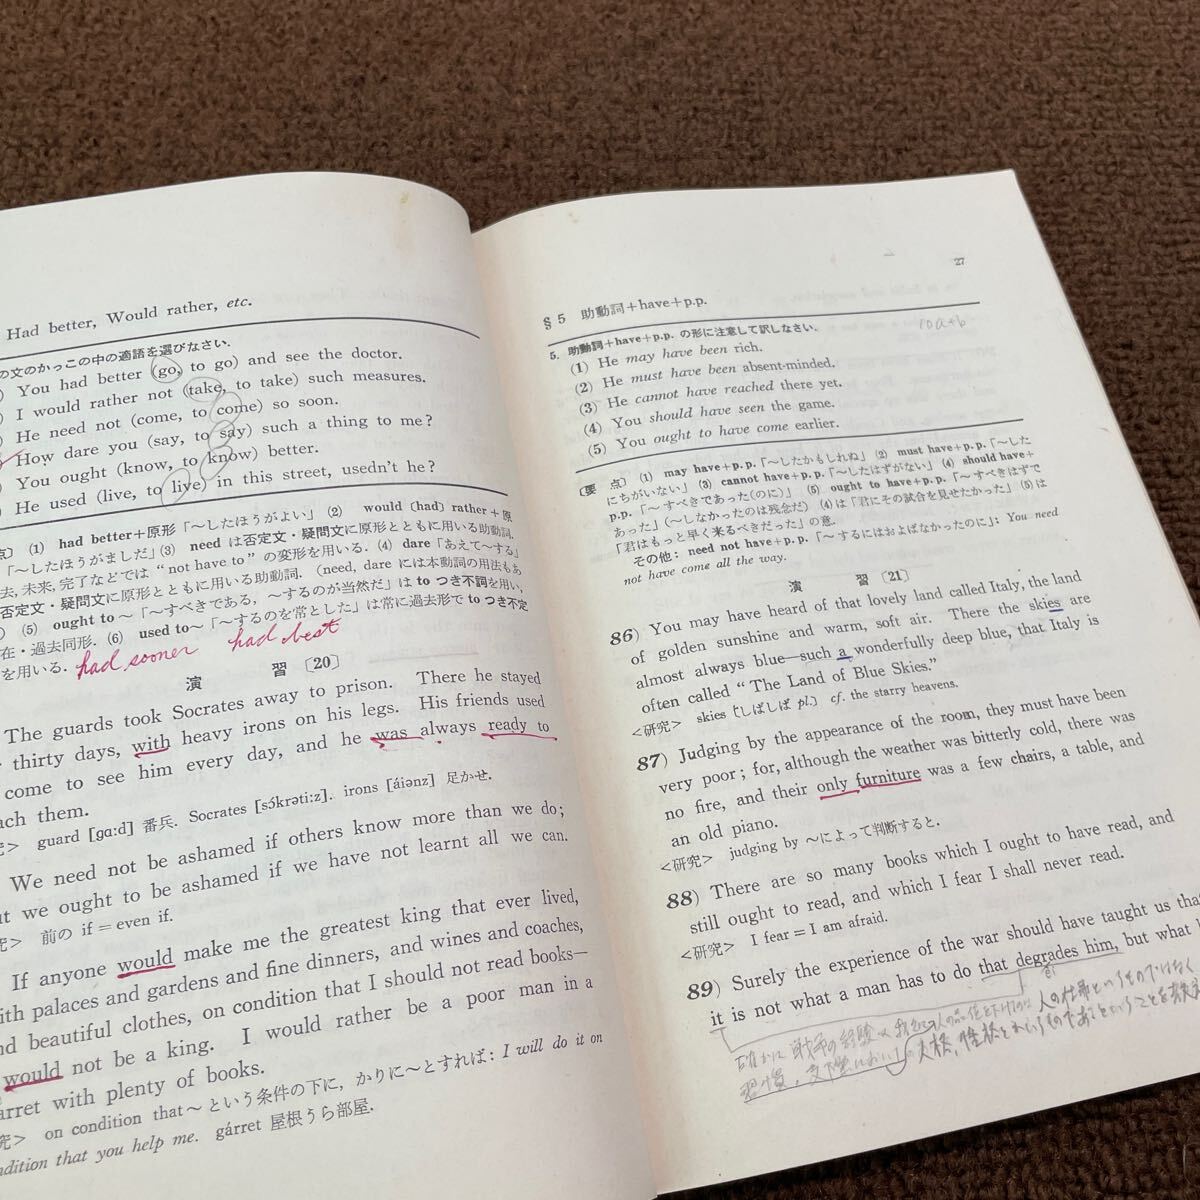 Had better, Would rather, etc.
の文のかっこの中の適語を選びなさい.
You had better (go, to go) and see the doctor.
I would rather not (take, to take) such measures.
He need not (come, to come) so soon.
How dare you (say, to say) such a thing to me?
You ought (know, to know) better.
He used (live, to live) in this street, usedn't he?
点〕 (1) had better+原形「〜したほうがよい」 (2) would (had) rather+原
「〜したほうがましだ」(3) need は否定文・疑問文に原形とともに用いる助動詞.
去, 未来, 完了などでは “not have to” の変形を用いる. (4) dare「あえて〜する」
否定文・疑問文に原形とともに用いる助動詞. (need, dare には本動詞の用法もあ
(5) ought to〜「〜すべきである, 〜するのが当然だ」は to つき不詞を用い,
在・過去同形. (6) used to〜「〜するのを常とした」は常に過去形で to つき不定
を用いる. had sooner had best
演 習 〔20〕
The guards took Socrates away to prison. There he stayed
thirty days, with heavy irons on his legs. His friends used
come to see him every day, and he was always ready to
ach them.
究> guard [gɑ:d] 番兵. Socrates [sɔ́krəti:z]. irons [áiənz] 足かせ.
We need not be ashamed if others know more than we do;
ut we ought to be ashamed if we have not learnt all we can.
究> 前の if = even if.
If anyone would make me the greatest king that ever lived,
ith palaces and gardens and fine dinners, and wines and coaches,
nd beautiful clothes, on condition that I should not read books—
would not be a king. I would rather be a poor man in a
arret with plenty of books.
究> on condition that〜 という条件の下に, かりに〜とすれば: I will do it on
ndition that you help me. gárret 屋根うら部屋.
27
§ 5 助動詞+have+p.p.
10a+b
5. 助動詞+have+p.p. の形に注意して訳しなさい.
(1) He may have been rich.
(2) He must have been absent-minded.
(3) He cannot have reached there yet.
(4) You should have seen the game.
(5) You ought to have come earlier.
〔要 点〕 (1) may have+p.p.「〜したかもしれぬ」 (2) must have+p.p.「〜した
にちがいない」 (3) cannot have+p.p.「〜したはずがない」 (4) should have+
p.p.「〜すべきであった(のに)」 (5) ought to have+p.p.「〜すべきはずで
あった」(〜しなかったのは残念だ) (4)は「君にその試合を見せたかった」 (5)は
「君はもっと早く来るべきだった」の意.
その他: need not have+p.p.「〜するにはおよばなかったのに」: You need
not have come all the way.
演 習 〔21〕
86) You may have heard of that lovely land called Italy, the land
of golden sunshine and warm, soft air. There the skies are
almost always blue—such a wonderfully deep blue, that Italy is
often called “The Land of Blue Skies.”
<研究> skies 〔しばしば pl.〕 cf. the starry heavens.
87) Judging by the appearance of the room, they must have been
very poor; for, although the weather was bitterly cold, there was
no fire, and their only furniture was a few chairs, a table, and
an old piano.
<研究> judging by 〜によって判断すると.
88) There are so many books which I ought to have read, and
still ought to read, and which I fear I shall never read.
<研究> I fear = I am afraid.
89) Surely the experience of the war should have taught us that
it is not what a man has to do that degrades him, but what